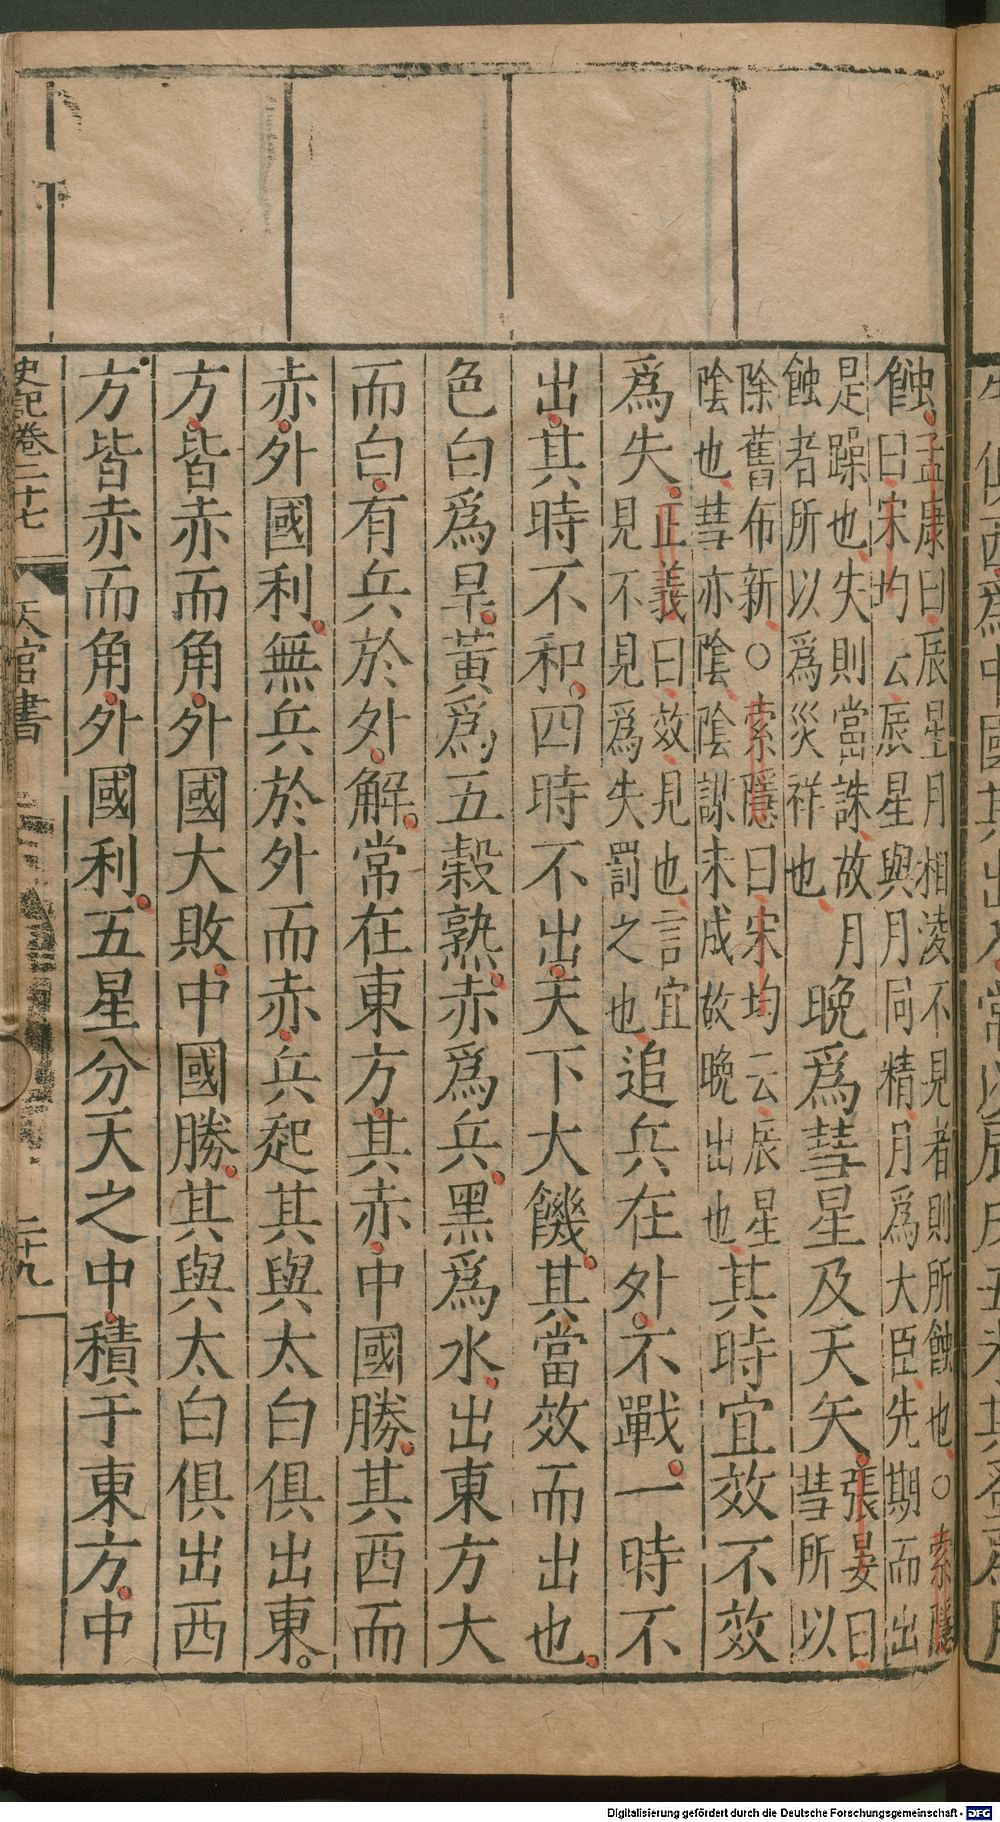 蝕孟康曰辰星月相淩不見者則所蝕也○索隱
曰宋均云辰星與月同精月爲大臣先期而出
是躁也失則當誅故月
蝕者所以爲災祥也晚爲彗星及天矢張晏曰
彗所以
除舊布新○索隱曰宋均云辰星
陰也彗亦陰陰謀未成故晚出也其時宜效不效
爲失正義曰效見也言宜
見不見爲失罰之也追兵在外不戰一時不
出其時不和四時不出天下大饑其當效而出也
色白爲旱黃爲五穀熟赤爲兵黑爲水出東方大
而白有兵於外解常在東方其赤中國勝其西而
赤外國利無兵於外而赤兵起其與太白俱出東
方皆赤而角外國大敗中國勝其與太白俱出西
方皆赤而角外國利五星分天之中積于東方中
史記卷二十七 天官書 二十九
Digitalisierung gefördert durch die Deutsche Forschungsgemeinschaft - DFG